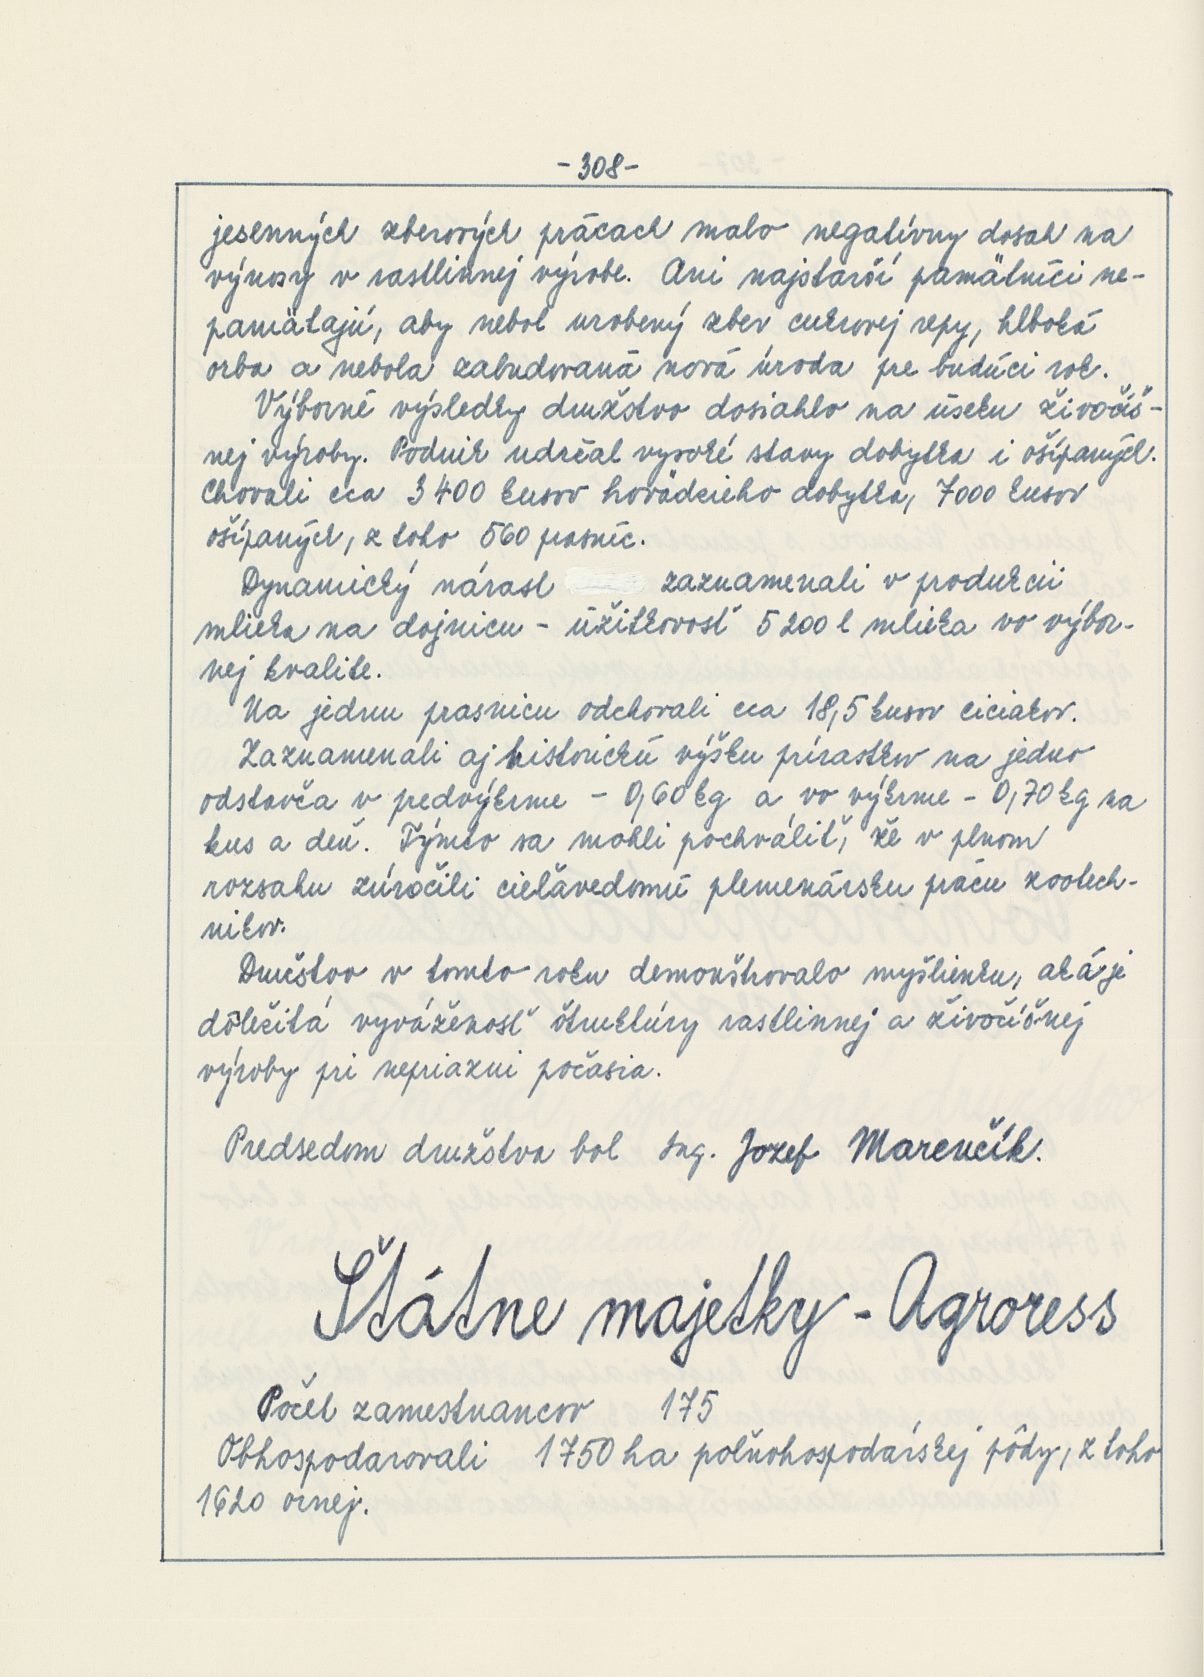 -308-
jesenných zberových prácach malo negatívny dosah na
výnosy v rastlinnej výrobe. Ani najstarší pamätníci ne-
pamätajú, aby nebol urobený zber cukrovej repy, hlboká
orba a nebola zabudovaná nová úroda pre budúci rok.
Výborné výsledky družstvo dosiahlo na úseku živočíš-
nej výroby. Podnik udržal vysoké stavy dobytka i ošípaných.
Chovali cca 3 400 kusov hovädzieho dobytka, 7000 kusov
ošípaných, z toho 560 prasníc.
Dynamický nárast zaznamenali v produkcii
mlieka na dojnicu - úžitkovosť 5 200 l mlieka vo výbor-
nej kvalite.
Na jednu prasnicu odchovali cca 18,5 kusov ciciakov.
Zaznamenali aj historickú výšku prírastkov na jedno
odstavča v predvýkrme - 0,60 kg a vo výkrme - 0,70 kg na
kus a deň. Týmto sa mohli pochváliť, že v plnom
rozsahu zúročili cieľavedomú plemenársku prácu zootech-
nikov.
Družstvo v tomto roku demonštrovalo myšlienku, aká je
dôležitá vyváženosť štruktúry rastlinnej a živočíšnej
výroby pri nepriazni počasia.
Predsedom družstva bol Ing. Jozef Marenčík.
Štátne majetky - Agroress
Počet zamestnancov 175
Obhospodarovali 1750 ha poľnohospodárskej pôdy, z toho
1620 ornej.